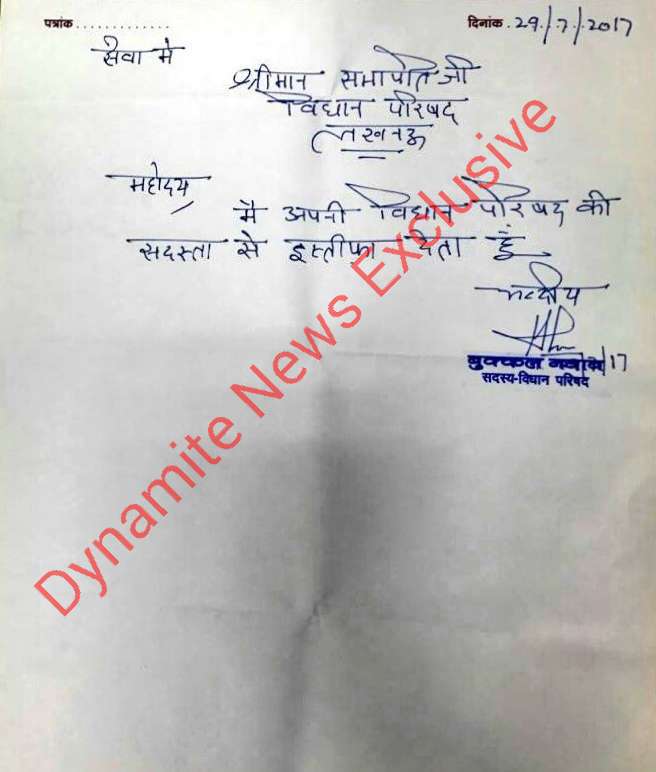 पत्रांक............. दिनांक.29/7/2017
सेवा मे
श्रीमान सभापति जी
विधान परिषद
लखनऊ
महोदय
मै अपनी विधान परिषद की
सदस्ता से इस्तीफ़ा देता हूँ
भवदीय
मुक्कल नवाब
सदस्य-विधान परिषद
Dynamite News Exclusive